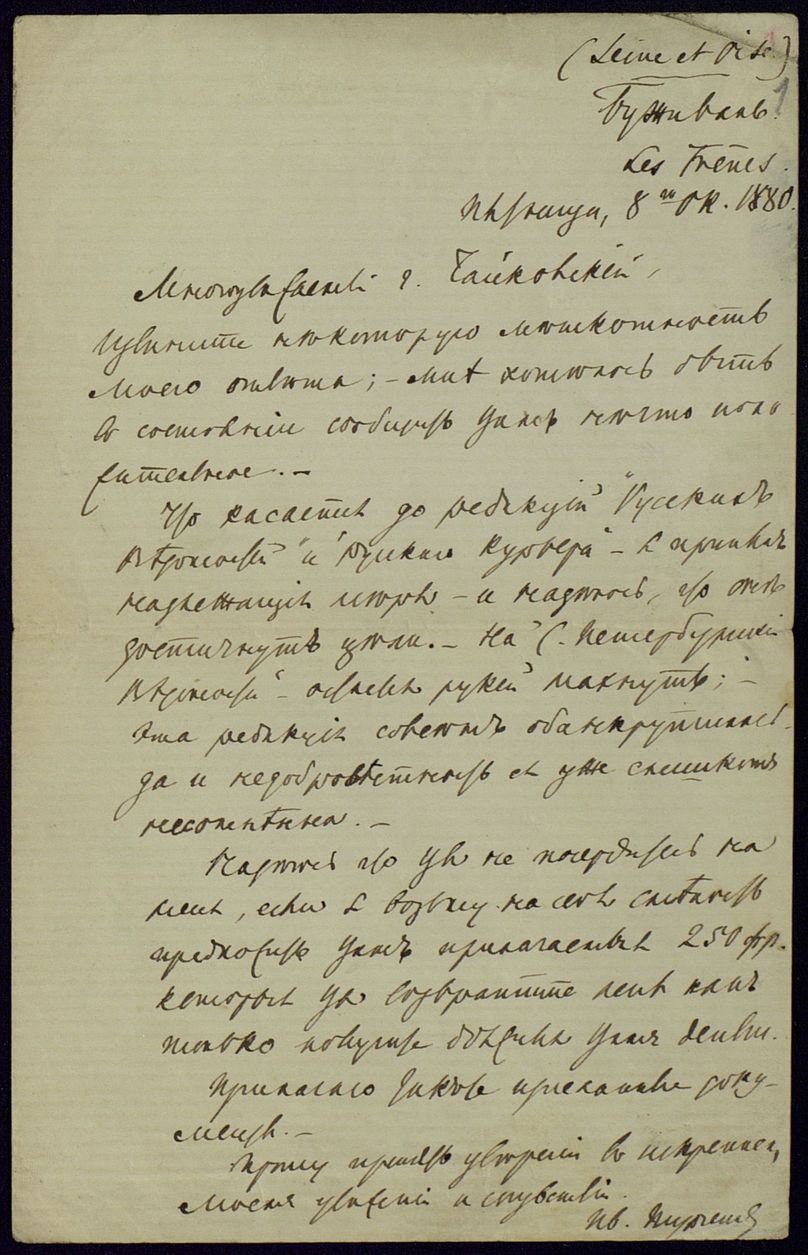 (Seine et Oise)
1
Буживаль.
Les Frênes.
Пятница, 8го Ок. 1880.
Многоуважаемый г. Чайковскій,
Извините нѣкоторую мѣшкотность
моего отвѣта; – мнѣ хотѣлось быть
въ состояніи сообщить Вамъ нѣчто поло
жительное. –
Что касается до редакцій "Русскихъ
Вѣдомостей" и "Русскаго Курьера" – я принялъ
надлежащія мѣры – и надѣюсь, что онѣ
достигнутъ цѣли. – На "С. Петербургскія
Вѣдомости" – остается рукой махнуть; –
эта редакція совсѣмъ обанкрутилась –
да и недобросовѣстность ея уже слишкомъ
несомнѣнна. –
Надѣюсь что Вы не посердитесь на
меня, если я возьму на себя смѣлость
предложить Вамъ прилагаемые 250 фр.
которые Вы возвратите мнѣ какъ
только получите должныя Вамъ деньги.
Прилагаю также присланные доку-
менты. –
Прошу принять увѣреніе въ искреннемъ
моемъ уваженіи и сочувствіи.
Ив. Тургеневъ